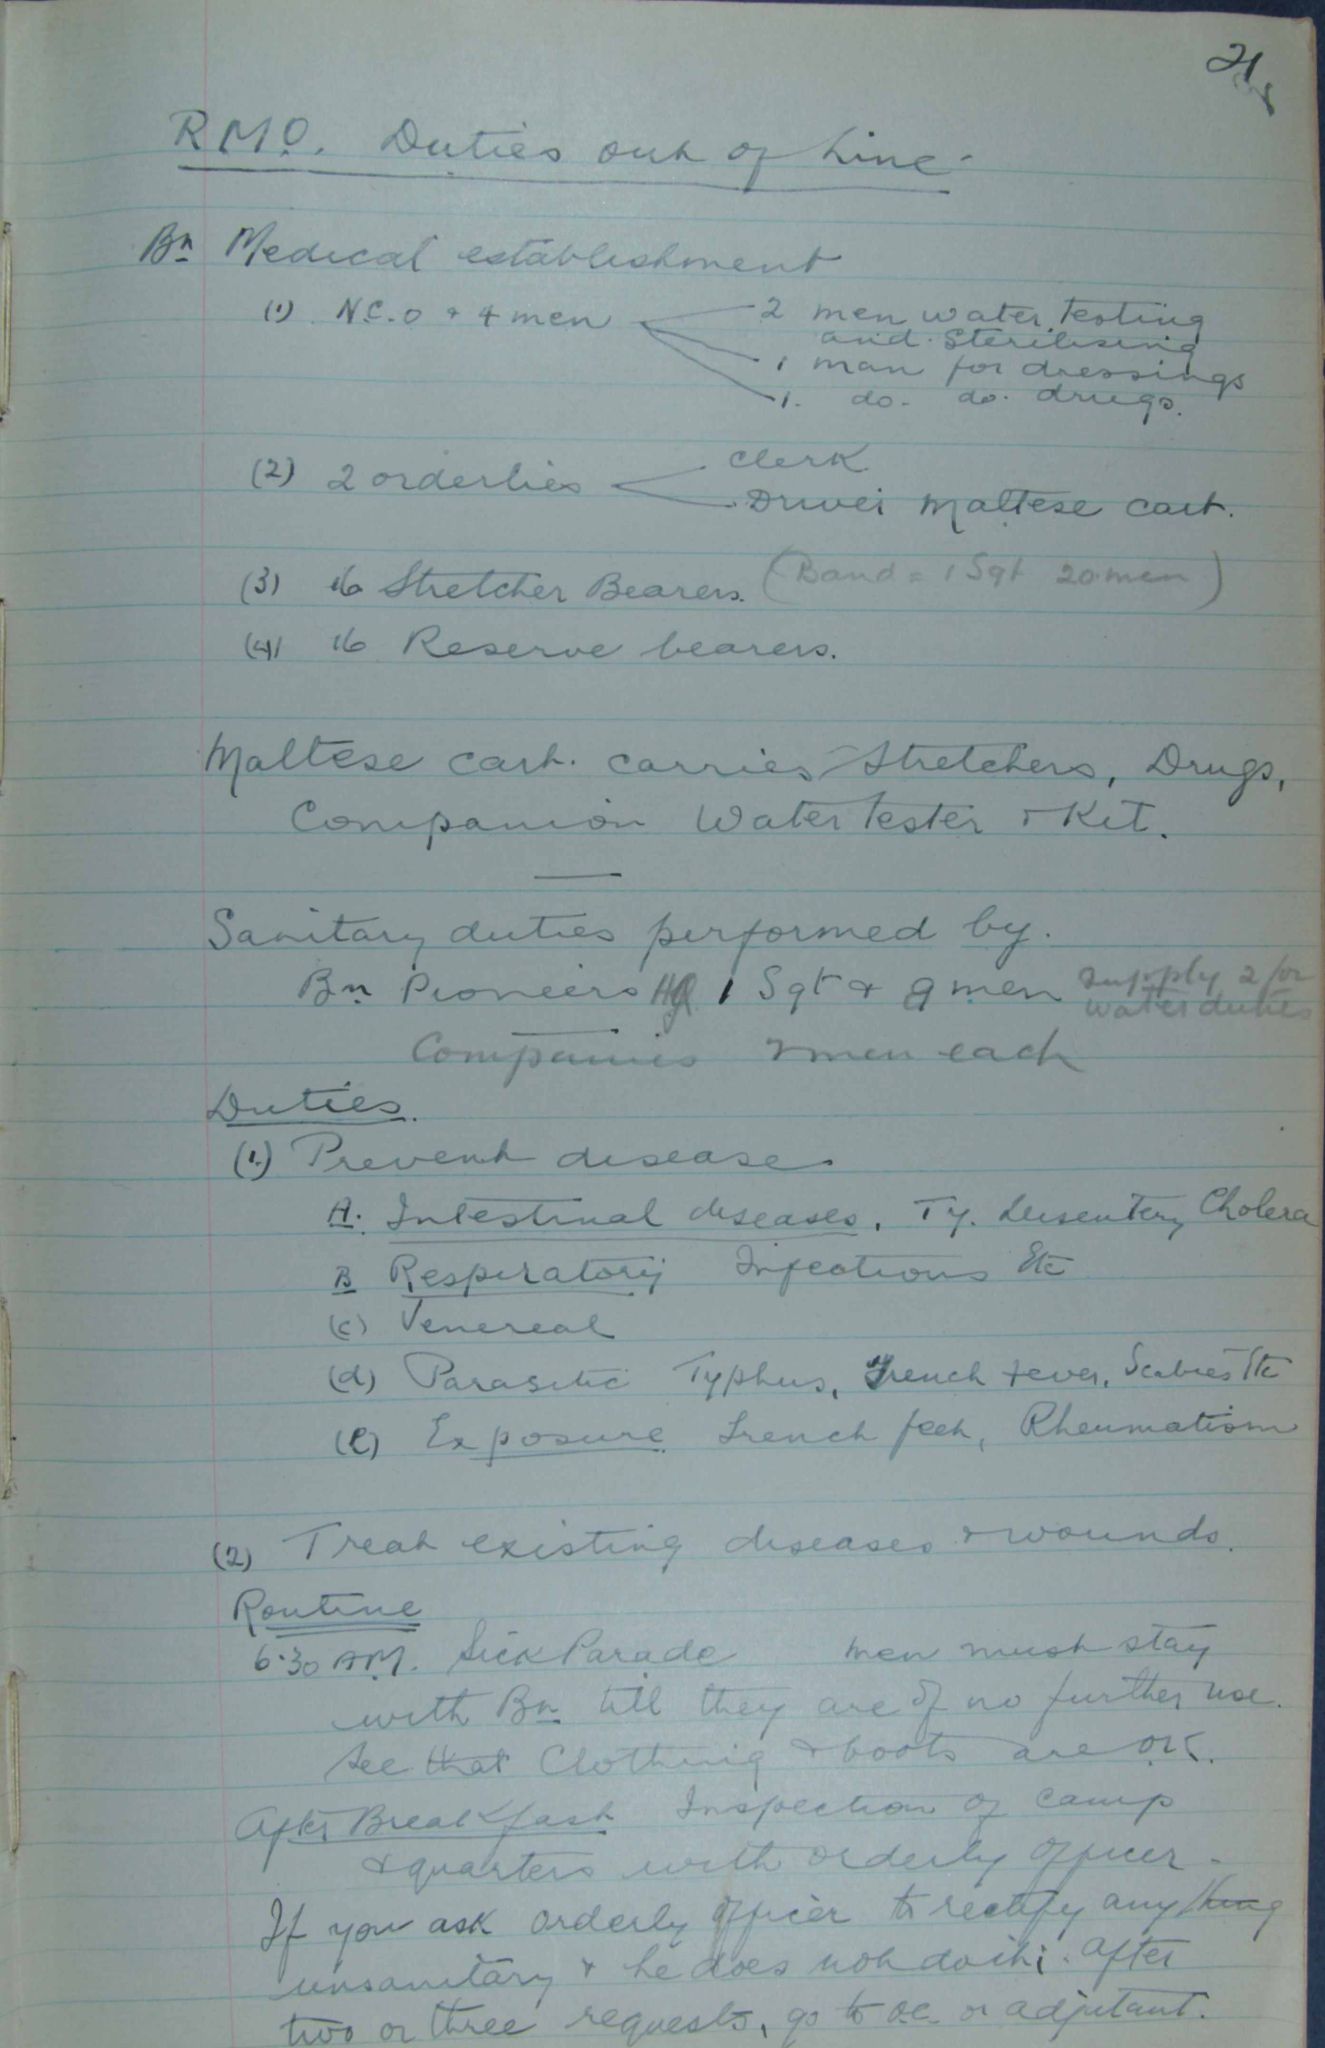 21
R.M.O. Duties out of Line -
Bn Medical establishment
(1) N.C.O + 4 men 2 men water testing
and sterilising
1 man for dressings
1. do. do. drugs.
(2) 2 orderlies Clerk
Driver Maltese cart.
(3) 16 Stretcher Bearers. (Band = 1 Sgt 20 men)
(4) 16 Reserve bearers.
Maltese cart. carries Stretchers, Drugs,
Companion Water Tester + Kit.
Sanitary duties performed by.
Bn Pioneers HQ 1 Sgt + 9 men supply 2 for
water duties
Companies 2 men each
Duties.
(1.) Prevent disease.
A. Intestinal diseases, Ty. Dysentery Cholera
B Respiratory Infections Etc
(c) Venereal
(d) Parasitic Typhus, Trench fever, Scabies Etc
(e) Exposure Trench feet, Rheumatism
(2) Treat existing diseases + wounds.
Routine
6.30 AM. Sick Parade men must stay
with Bn till they are of no further use.
See that Clothing + boots are OK.
After Breakfast Inspection of camp
+ quarters with orderly officer -
If you ask orderly officer to rectify anything
unsanitary + he does not do it; after
two or three requests, go to O.C. or adjutant.